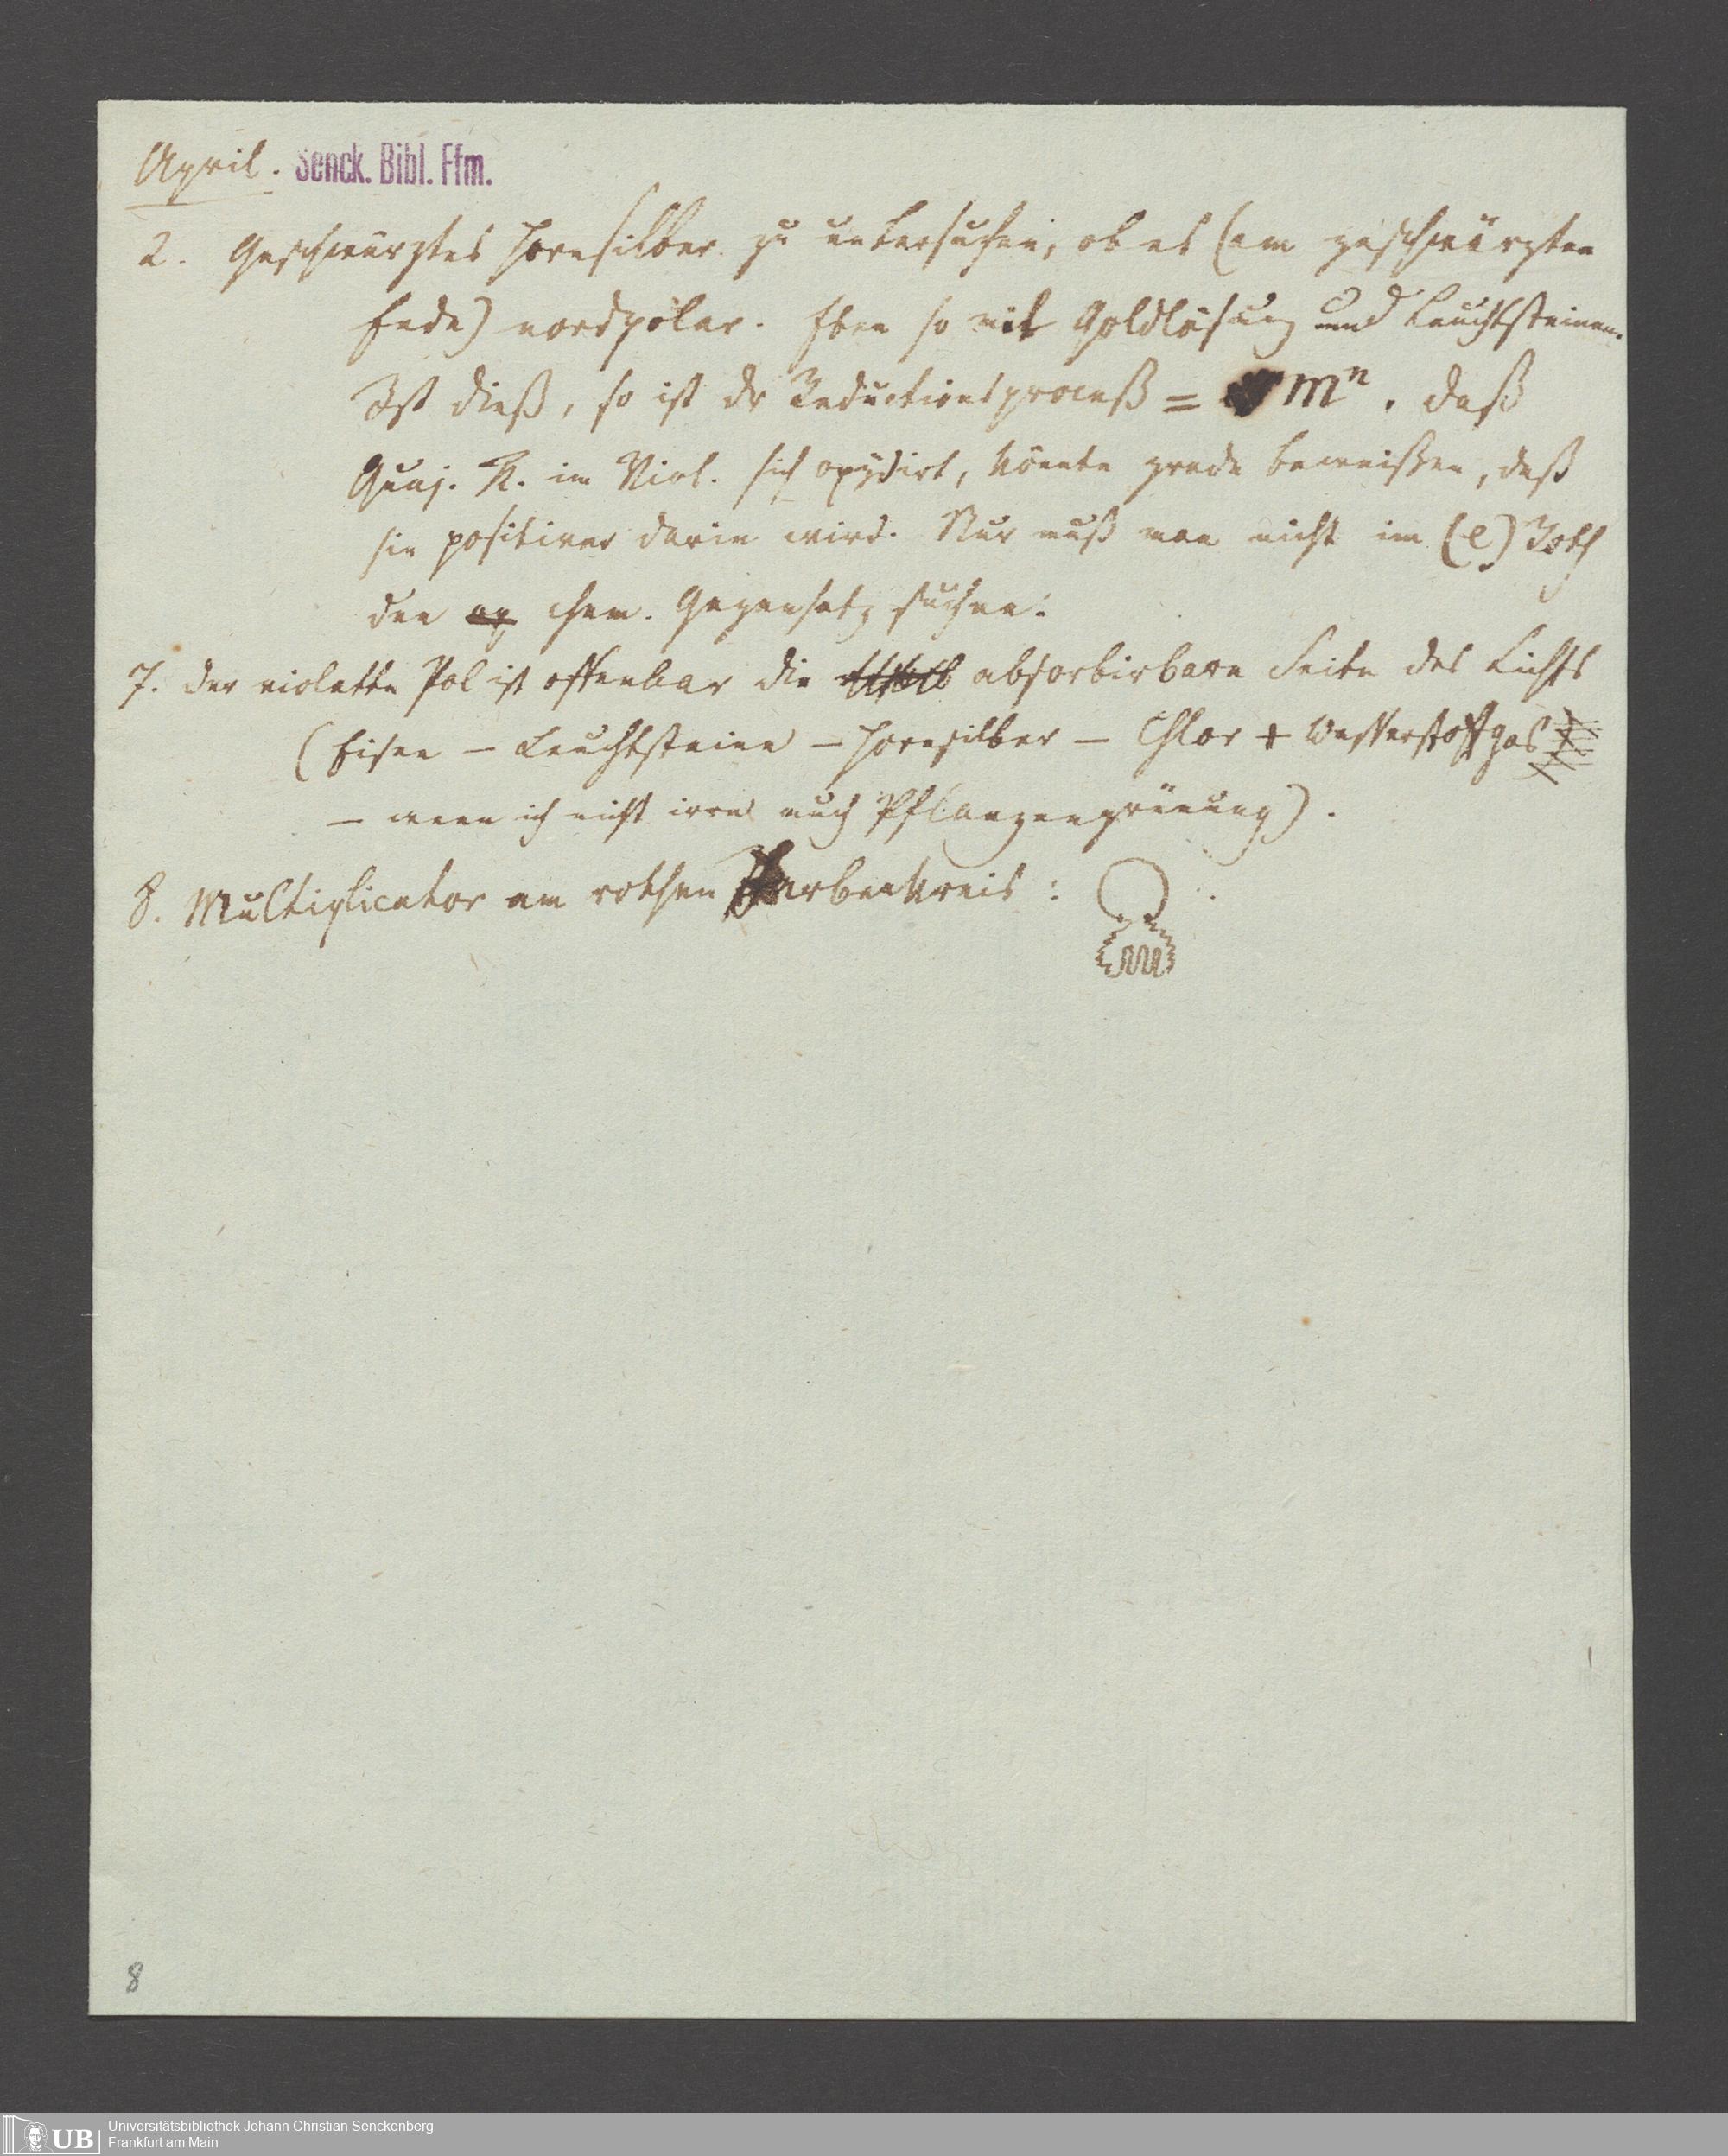 April. Senck. Bibl. Ffm.
2. Geschwärztes Hornsilber zu untersuchen, ob es (am geschwärzten
Ende) nordpolar. Eben so mit Goldlösung und Leuchtsteinen.
Ist dieß, so ist dr Reductionsproceß = mⁿ. Daß
Guaj. R. im Viol. sich oxydirt, könnte grade beweißen, daß
sie positiver darin wird. Nur muß man nicht im (e) Roth
den ox chem. Gegensatz suchen.
7. Der violette Pol ist offenbar die absorbirbare Seite des Lichts
(Eisen – Leuchtsteine – Hornsilber – Chlor + Wasserstoffgas
– wenn ich nicht irre auch Pflanzengrünung).
8. Multiplicator am rothen Farbenkreis:
8
UB Universitätsbibliothek Johann Christian Senckenberg
Frankfurt am Main